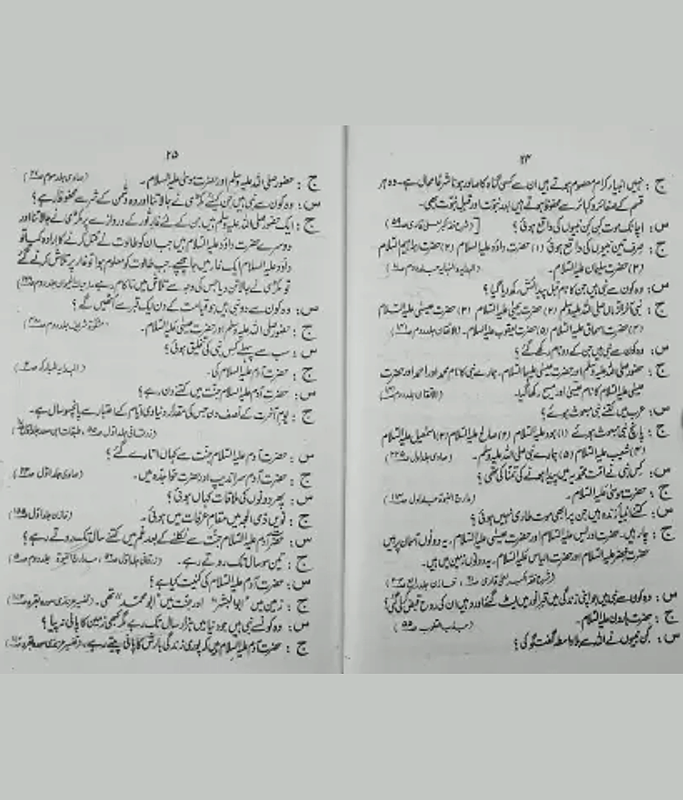 ۲۴
ج : نہیں انبیاء کرام معصوم ہوتے ہیں ان سے کسی گناہ کا صادر ہونا شرعاً محال ہے۔ وہ ہر
قسم کے صغائر و کبائر سے محفوظ ہوتے ہیں بعد نبوت اور قبل نبوت بھی۔
س : اچانک موت کن کن نبیوں کی واقع ہوئی؟
ج : صرف تین نبیوں کی واقع ہوئی (۱) حضرت داؤد علیہ السلام (۲) حضرت ابراہیم علیہ السلام
(۳) حضرت سلیمان علیہ السلام۔
س : وہ کون سے نبی ہیں جن کا نام قبل پیدائش رکھ دیا گیا؟
ج : نبی آخرالزماں صلی اللہ علیہ وسلم (۲) حضرت یحییٰ علیہ السلام (۳) حضرت عیسیٰ علیہ السلام
(۴) حضرت اسحاق علیہ السلام (۵) حضرت یعقوب علیہ السلام۔ (الاتقان جلد دوم
س : وہ کون سے نبی ہیں جن کے دو نام رکھے گئے؟
ج : حضور صلی اللہ علیہ وسلم اور حضرت عیسیٰ علیہما السلام۔ ہمارے نبی کا نام محمد اور احمد اور حضرت
عیسیٰ علیہ السلام کا نام عیسیٰ اور مسیح رکھا گیا۔ (الاتقان جلد دوم
س : عرب میں کتنے نبی مبعوث ہوئے؟
ج : پانچ نبی مبعوث ہوئے (۱) ہود علیہ السلام (۲) صالح علیہ السلام (۳) اسمٰعیل علیہ السلام
(۴) شعیب علیہ السلام (۵) ہمارے نبی صلی اللہ علیہ وسلم۔ (صاوی جلد اول
س : کس نبی نے امت محمدیہ میں پیدا ہونے کی تمنا کی تھی؟
ج : حضرت موسیٰ علیہ السلام۔ (مدارج النبوۃ جلد اول
س : کتنے انبیاء زندہ ہیں جن پر ابھی موت طاری نہیں ہوئی؟
ج : چار ہیں۔ حضرت ادریس علیہ السلام اور حضرت عیسیٰ علیہ السلام۔ یہ دونوں آسمان پر ہیں
حضرت خضر علیہ السلام اور حضرت الیاس علیہ السلام۔ یہ دونوں زمین میں ہیں۔
س : وہ کون سے نبی ہیں جو اپنی زندگی میں قبر انور میں لیٹ گئے اور وہیں ان کی روح قبض کی گئی؟
ج : حضرت ہارون علیہ السلام۔ (جذب القلوب
س : کن نبیوں نے اللہ سے بلا واسطہ گفتگو کی؟
۲۵
ج : حضور صلی اللہ علیہ وسلم اور حضرت موسیٰ علیہ السلام۔ (صاوی جلد سوم
س : وہ کون سے نبی ہیں جن کیلئے مکڑی نے جالا تنا اور وہ دشمن کے شر سے محفوظ رہے؟
ج : ایک حضور صلی اللہ علیہ وسلم ہیں جن کے لئے غار ثور کے دروازے پر مکڑی نے جالا تنا اور
دوسرے حضرت داؤد علیہ السلام ہیں جب ان کو طالوت نے قتل کرنے کا ارادہ کیا تو
داؤد علیہ السلام ایک غار میں جا چھپے، جب طالوت کو معلوم ہوا تو غار پر تلاش کرنے گئے
تو مکڑی نے جالا تن دیا جس کی وجہ سے تلاش میں ناکام رہے۔
س : وہ کون سے دو نبی ہیں جو قیامت کے دن ایک قبر سے اٹھیں گے؟
ج : حضور صلی اللہ علیہ وسلم اور حضرت عیسیٰ علیہ السلام۔ (مشکوٰۃ شریف جلد دوم
س : سب سے پہلے کس نبی کی تخلیق ہوئی؟
ج : حضرت آدم علیہ السلام کی۔
س : حضرت آدم علیہ السلام جنت میں کتنے دن رہے؟
ج : یوم آخرت کے نصف دن جس کی مقدار دنیاوی ایام کے اعتبار سے پانچ سو سال ہے۔
(زرقانی جلد اول
س : حضرت آدم علیہ السلام جنت سے کہاں اتارے گئے؟
ج : حضرت آدم سراندیپ اور حضرت حوا جدہ میں۔ (صاوی جلد اول
س : پھر دونوں کی ملاقات کہاں ہوئی؟
ج : نویں ذی الحجہ میں مقام عرفات میں ہوئی۔ (خازن جلد اول
س : حضرت آدم علیہ السلام جنت سے نکلنے کے بعد غم میں کتنے سال تک روتے رہے؟
ج : تین سو سال تک روتے رہے۔ (زرقانی جلد اول
س : حضرت آدم علیہ السلام کی کنیت کیا ہے؟
ج : زمین میں "ابوالبشر" اور جنت میں "ابو محمد" تھی۔
س : وہ کون سے نبی ہیں جو دنیا میں ہزار سال تک رہے مگر کبھی زمین کا پانی نہ پیا؟
ج : حضرت آدم علیہ السلام ہیں کہ پوری زندگی بارش کا پانی پیتے رہے۔